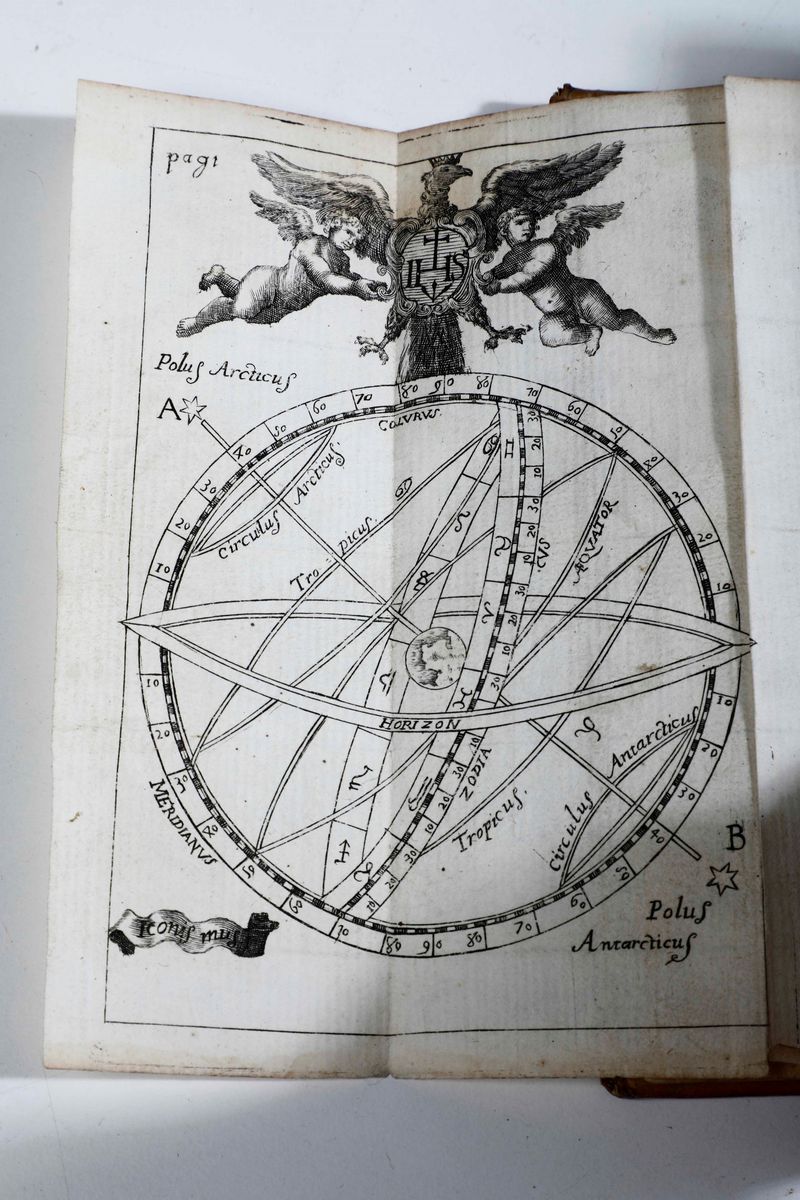 pag 1
IHS
Polus Arcticus
A
COLVRVS
70 80 90 80 70
60 60
50 50
40 40
30 30
20 20
10 10
Circulus Arcticus.
Tropicus. ♋
♊
♋
♌
♉
♍
♈
ÆQVATOR
♎
♓
HORIZON
ZODIA
CVS
10 10
20 20
30 30
40 40
50 50
60
70 80 90 80 70
MERIDIANVS
♏
♒
♐
♑
♑
Tropicus.
Circulus Antarcticus
B
Polus
Antarcticus
Iconis mus